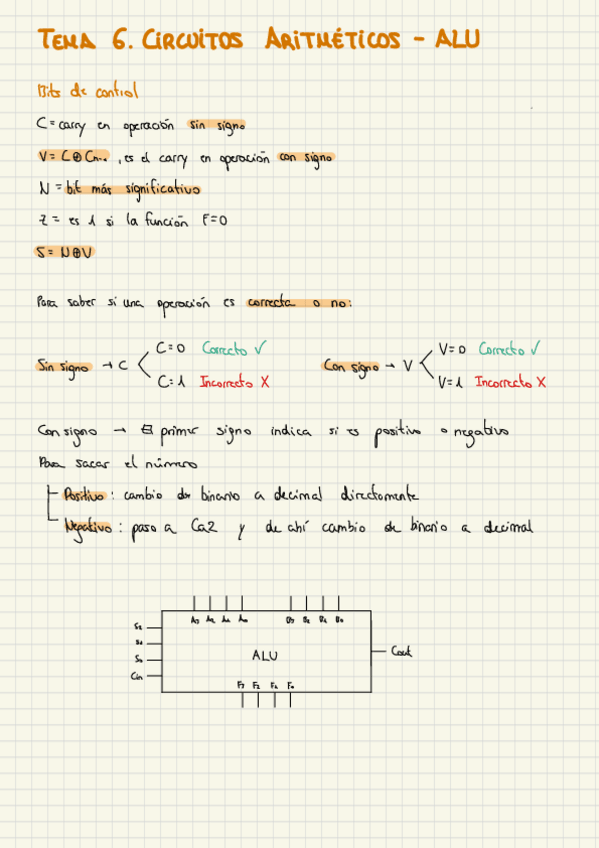 TEMA 6. CIRCUITOS ARITMÉTICOS - ALU
Bits de control
C = carry en operación sin signo
V = C⊕Cn-1, es el carry en operación con signo
N = bit más significativo
Z = es 1 si la función F=0
S = N⊕V
Para saber si una operación es correcta o no:
Sin signo → C
C=0 Correcto ✓
C=1 Incorrecto X
Con signo → V
V=0 Correcto ✓
V=1 Incorrecto X
Con signo → El primer signo indica si es positivo o negativo
Para sacar el número
Positivo: cambio de binario a decimal directamente
Negativo: paso a Ca2 y de ahí cambio de binario a decimal
A3 A2 A1 A0 B3 B2 B1 B0
S2
S1
S0
Cin
ALU
Cout
F3 F2 F1 F0